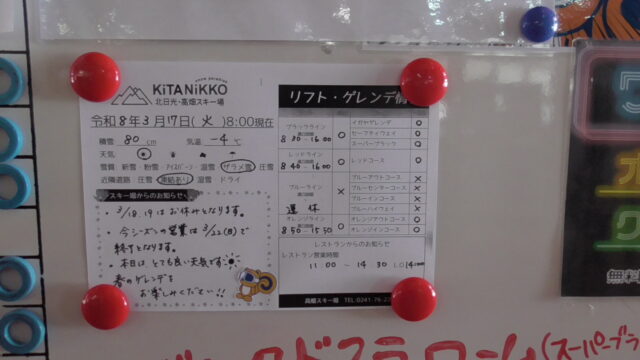 SNOW PARADISE
KiTANiKKO
北日光・高畑スキー場
令和8年3月17日(火)8:00現在
積雪 80 cm 気温 -4℃
天気
雪質 新雪・粉雪・アイスバーン・湿雪・ザラメ雪・圧雪
近隣道路 圧雪・凍結あり・湿雪・ドライ
スキー場からのお知らせ
・3/18.19はお休みとなります。
・今シーズンの営業は3/22(日)で
終了となります。
・本日は、とても良い天気です
春のゲレンデを
お楽しみください!!
リフト・ゲレンデ情
ブラックライン
8:30-16:00
イガヤゲレンデ ○
セーフティウェイ ○
スーパーブラック ○
レッドライン
8:40-16:00
レッドコース ○
ブルーライン
運休
×
ブルーアウトコース ×
ブルーセンターコース ×
ブルーインコース ×
ブルーハイウェイ ×
オレンジライン
8:50-15:50
オレンジアウトコース ○
オレンジインコース ○
レストランからのお知らせ
レストラン営業時間
11:00 ～ 14:30
高畑スキー場 TEL:0241-76-2
オ
ク
無料
(スーパーブラ